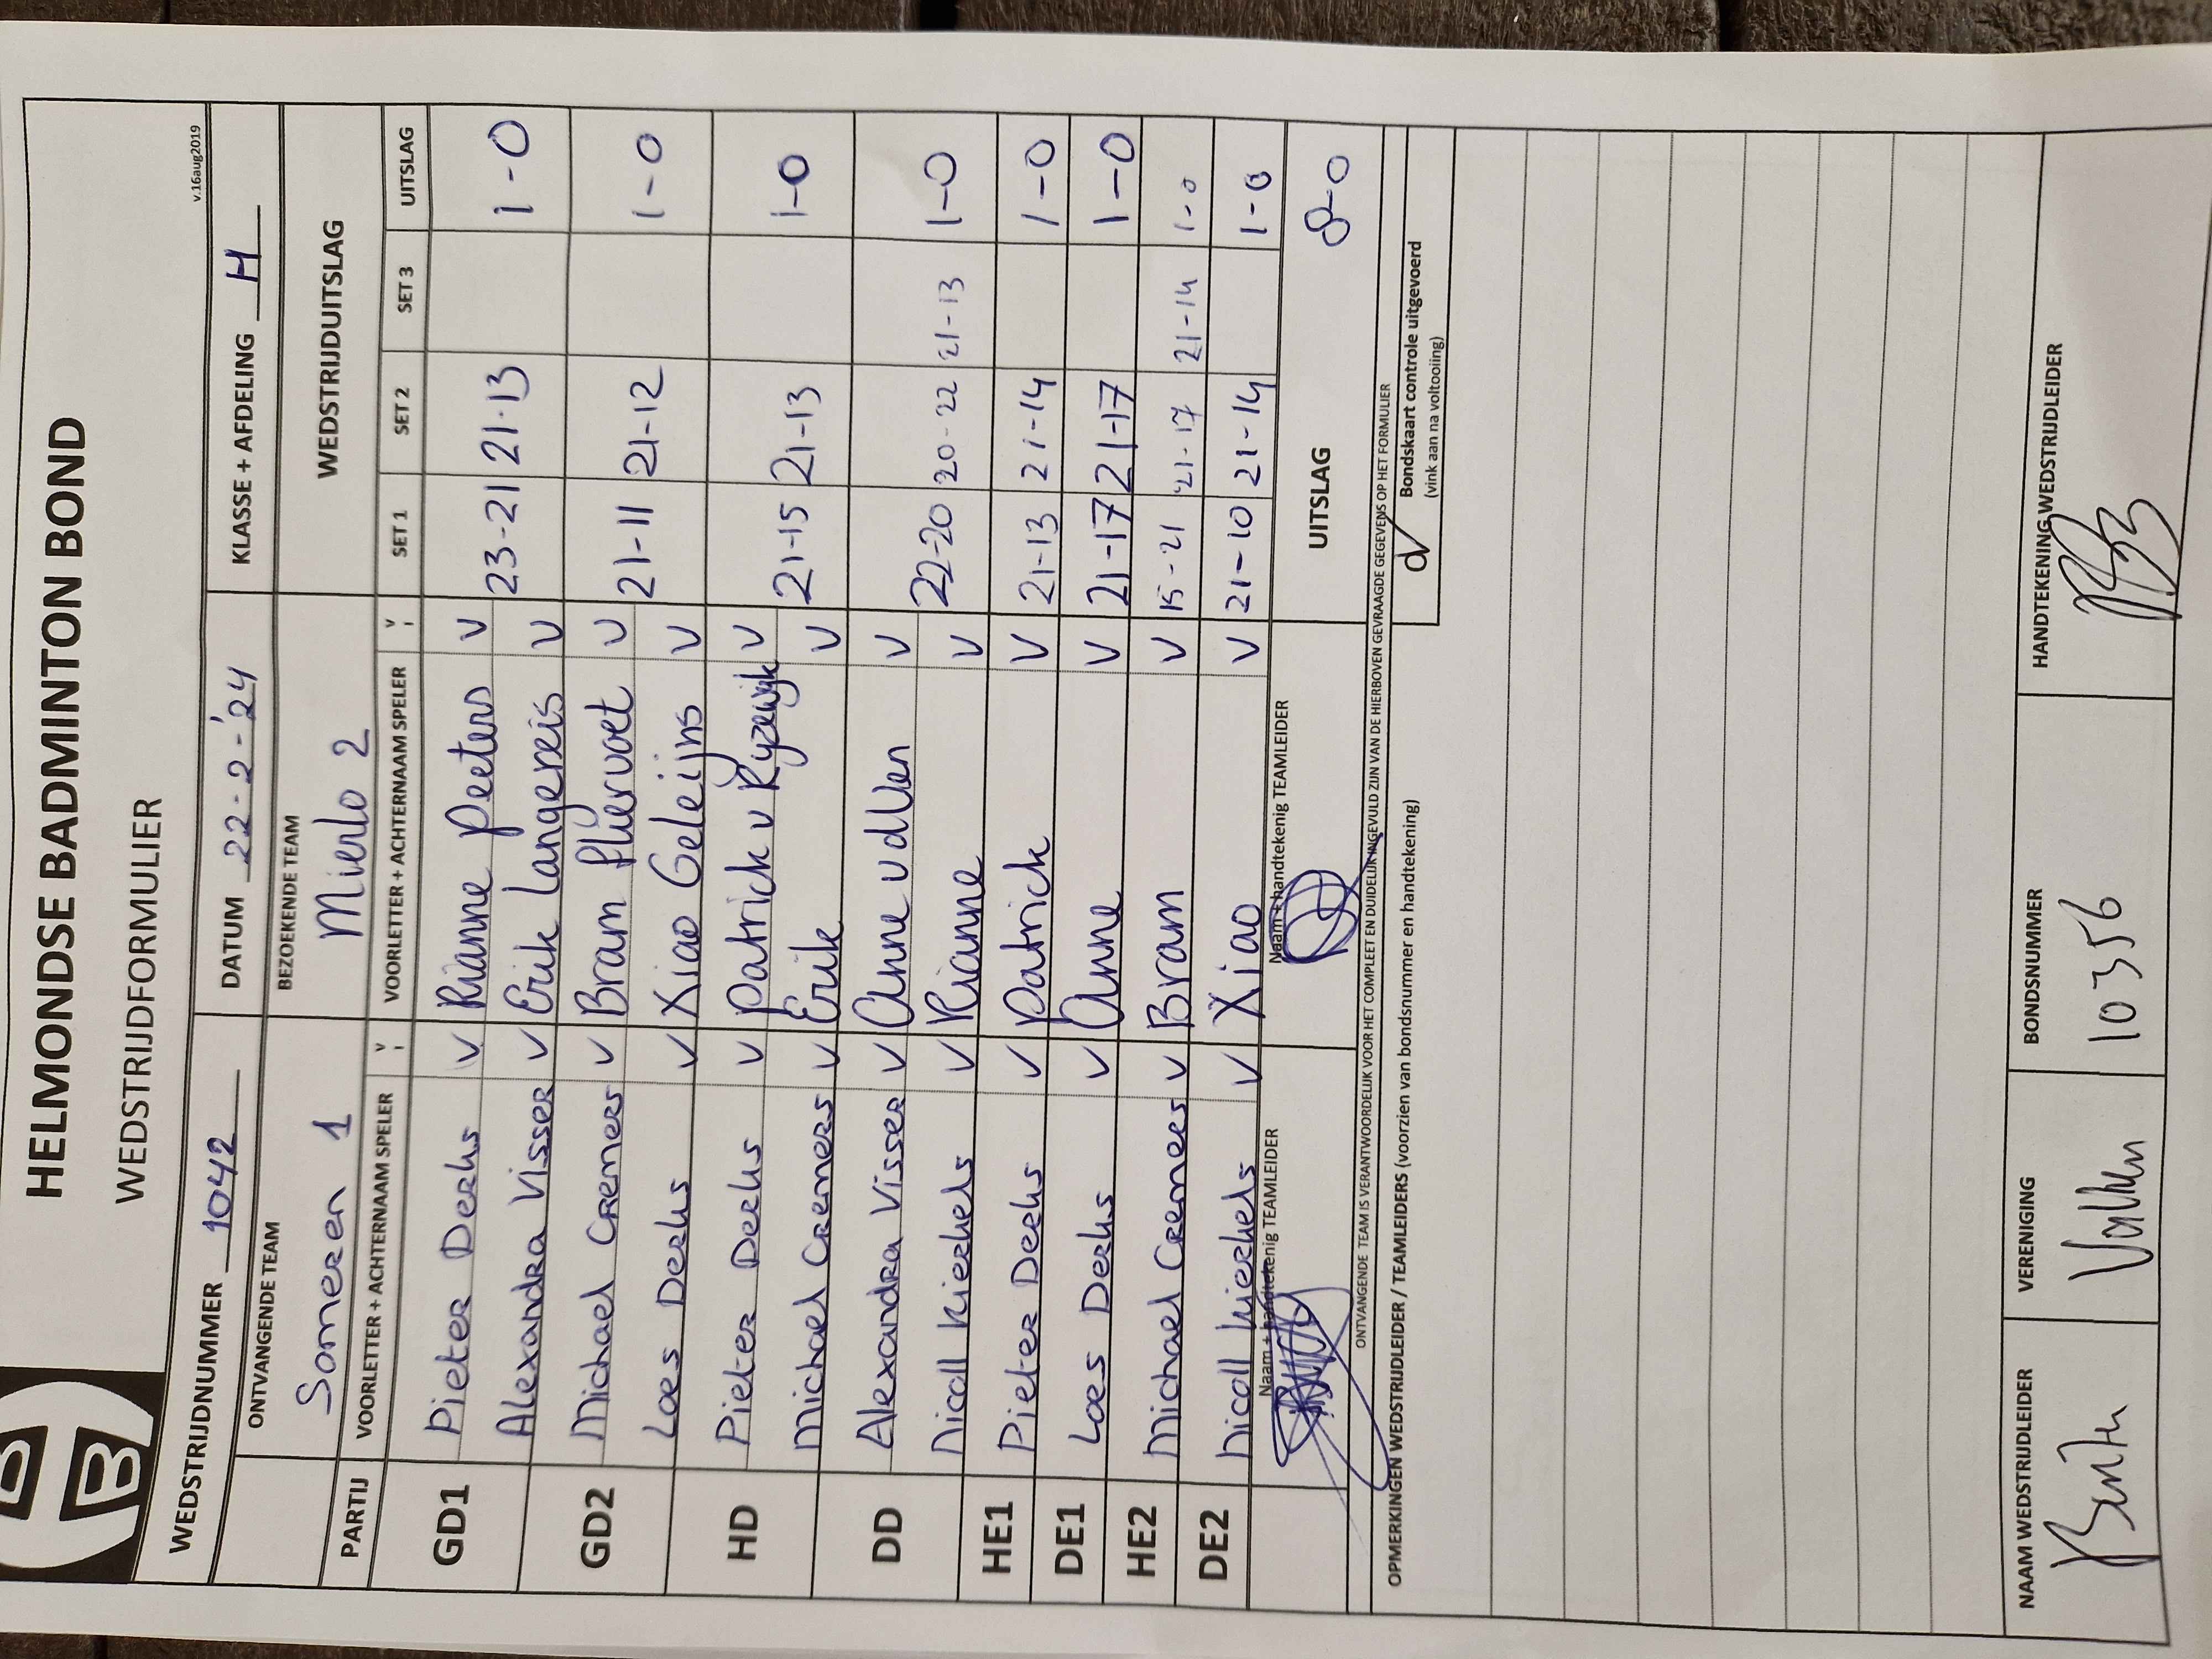 HELMONDSE BADMINTON BOND
WEDSTRIJDFORMULIER
v.16aug2019
WEDSTRIJDNUMMER 1042 DATUM 22-2-'24 KLASSE + AFDELING H
ONTVANGENDE TEAM BEZOEKENDE TEAM WEDSTRIJDUITSLAG
Someren 1 Mierlo 2
PARTIJ VOORLETTER + ACHTERNAAM SPELER V VOORLETTER + ACHTERNAAM SPELER V SET 1 SET 2 SET 3 UITSLAG
GD1 Pieter Derks V Rianne Peeters V 23-21 21-13 1-0
Alexandra Visser V Erik Langereis V
GD2 Michael Cremers V Bram Pliervoet V 21-11 21-12 1-0
Loes Derks V Xiao Geleijns V
HD Pieter Derks V Patrick v Rijzewijk V 21-15 21-13 1-0
Michael Cremers V Erik V
DD Alexandra Visser V Anne vd Ven V 22-20 20-22 21-13 1-0
Nicoll Kierkels V Rianne V
HE1 Pieter Derks V Patrick V 21-13 21-14 1-0
DE1 Loes Derks V Anne V 21-17 21-17 1-0
HE2 Michael Cremers V Bram V 15-21 21-17 21-14 1-0
DE2 Nicoll Kierkels V Xiao V 21-10 21-14 1-0
Naam + handtekenig TEAMLEIDER Naam + handtekenig TEAMLEIDER UITSLAG 8-0
ONTVANGENDE TEAM IS VERANTWOORDELIJK VOOR HET COMPLEET EN DUIDELIJK INGEVULD ZIJN VAN DE HIERBOVEN GEVRAAGDE GEGEVENS OP HET FORMULIER
OPMERKINGEN WEDSTRIJDLEIDER / TEAMLEIDERS (voorzien van bondsnummer en handtekening)
Bondskaart controle uitgevoerd
(vink aan na voltooiing)
NAAM WEDSTRIJDLEIDER VERENIGING BONDSNUMMER HANDTEKENING WEDSTRIJDLEIDER
10356